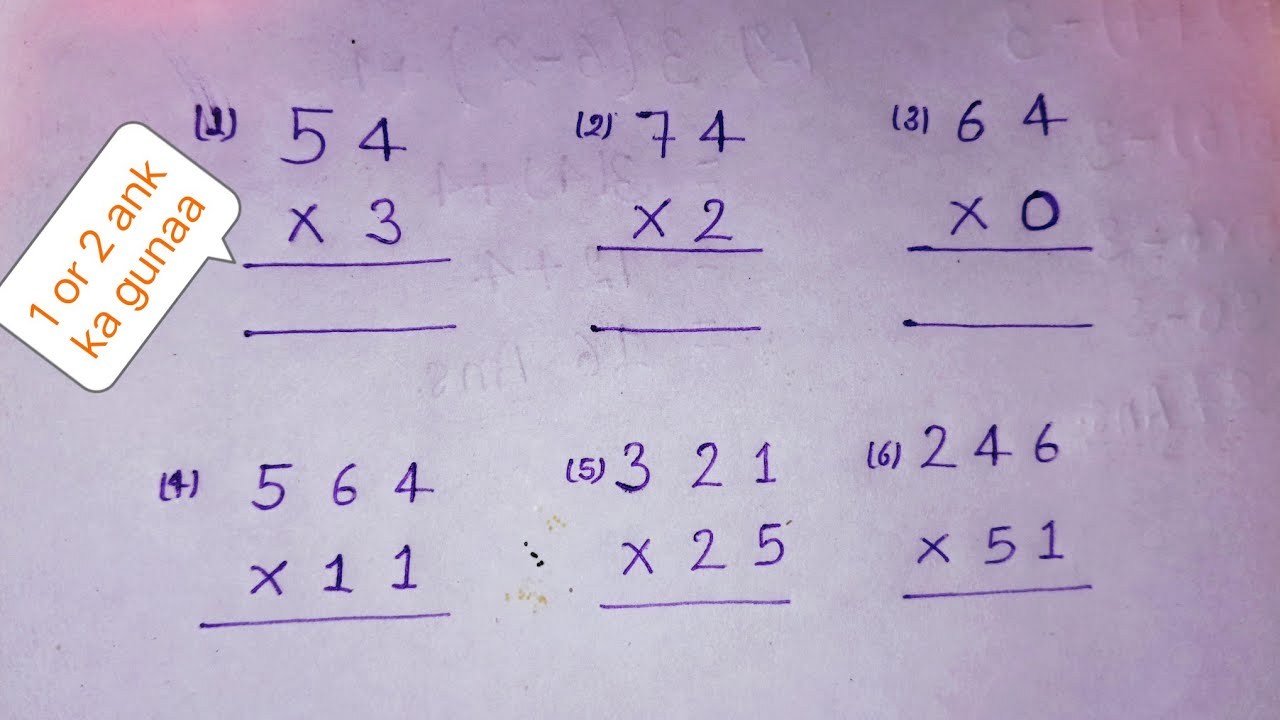 1 or 2 ank
ka gunaa
(1) 54
× 3
(2) 74
× 2
(3) 64
× 0
(4) 564
× 11
(5) 321
× 25
(6) 246
× 51